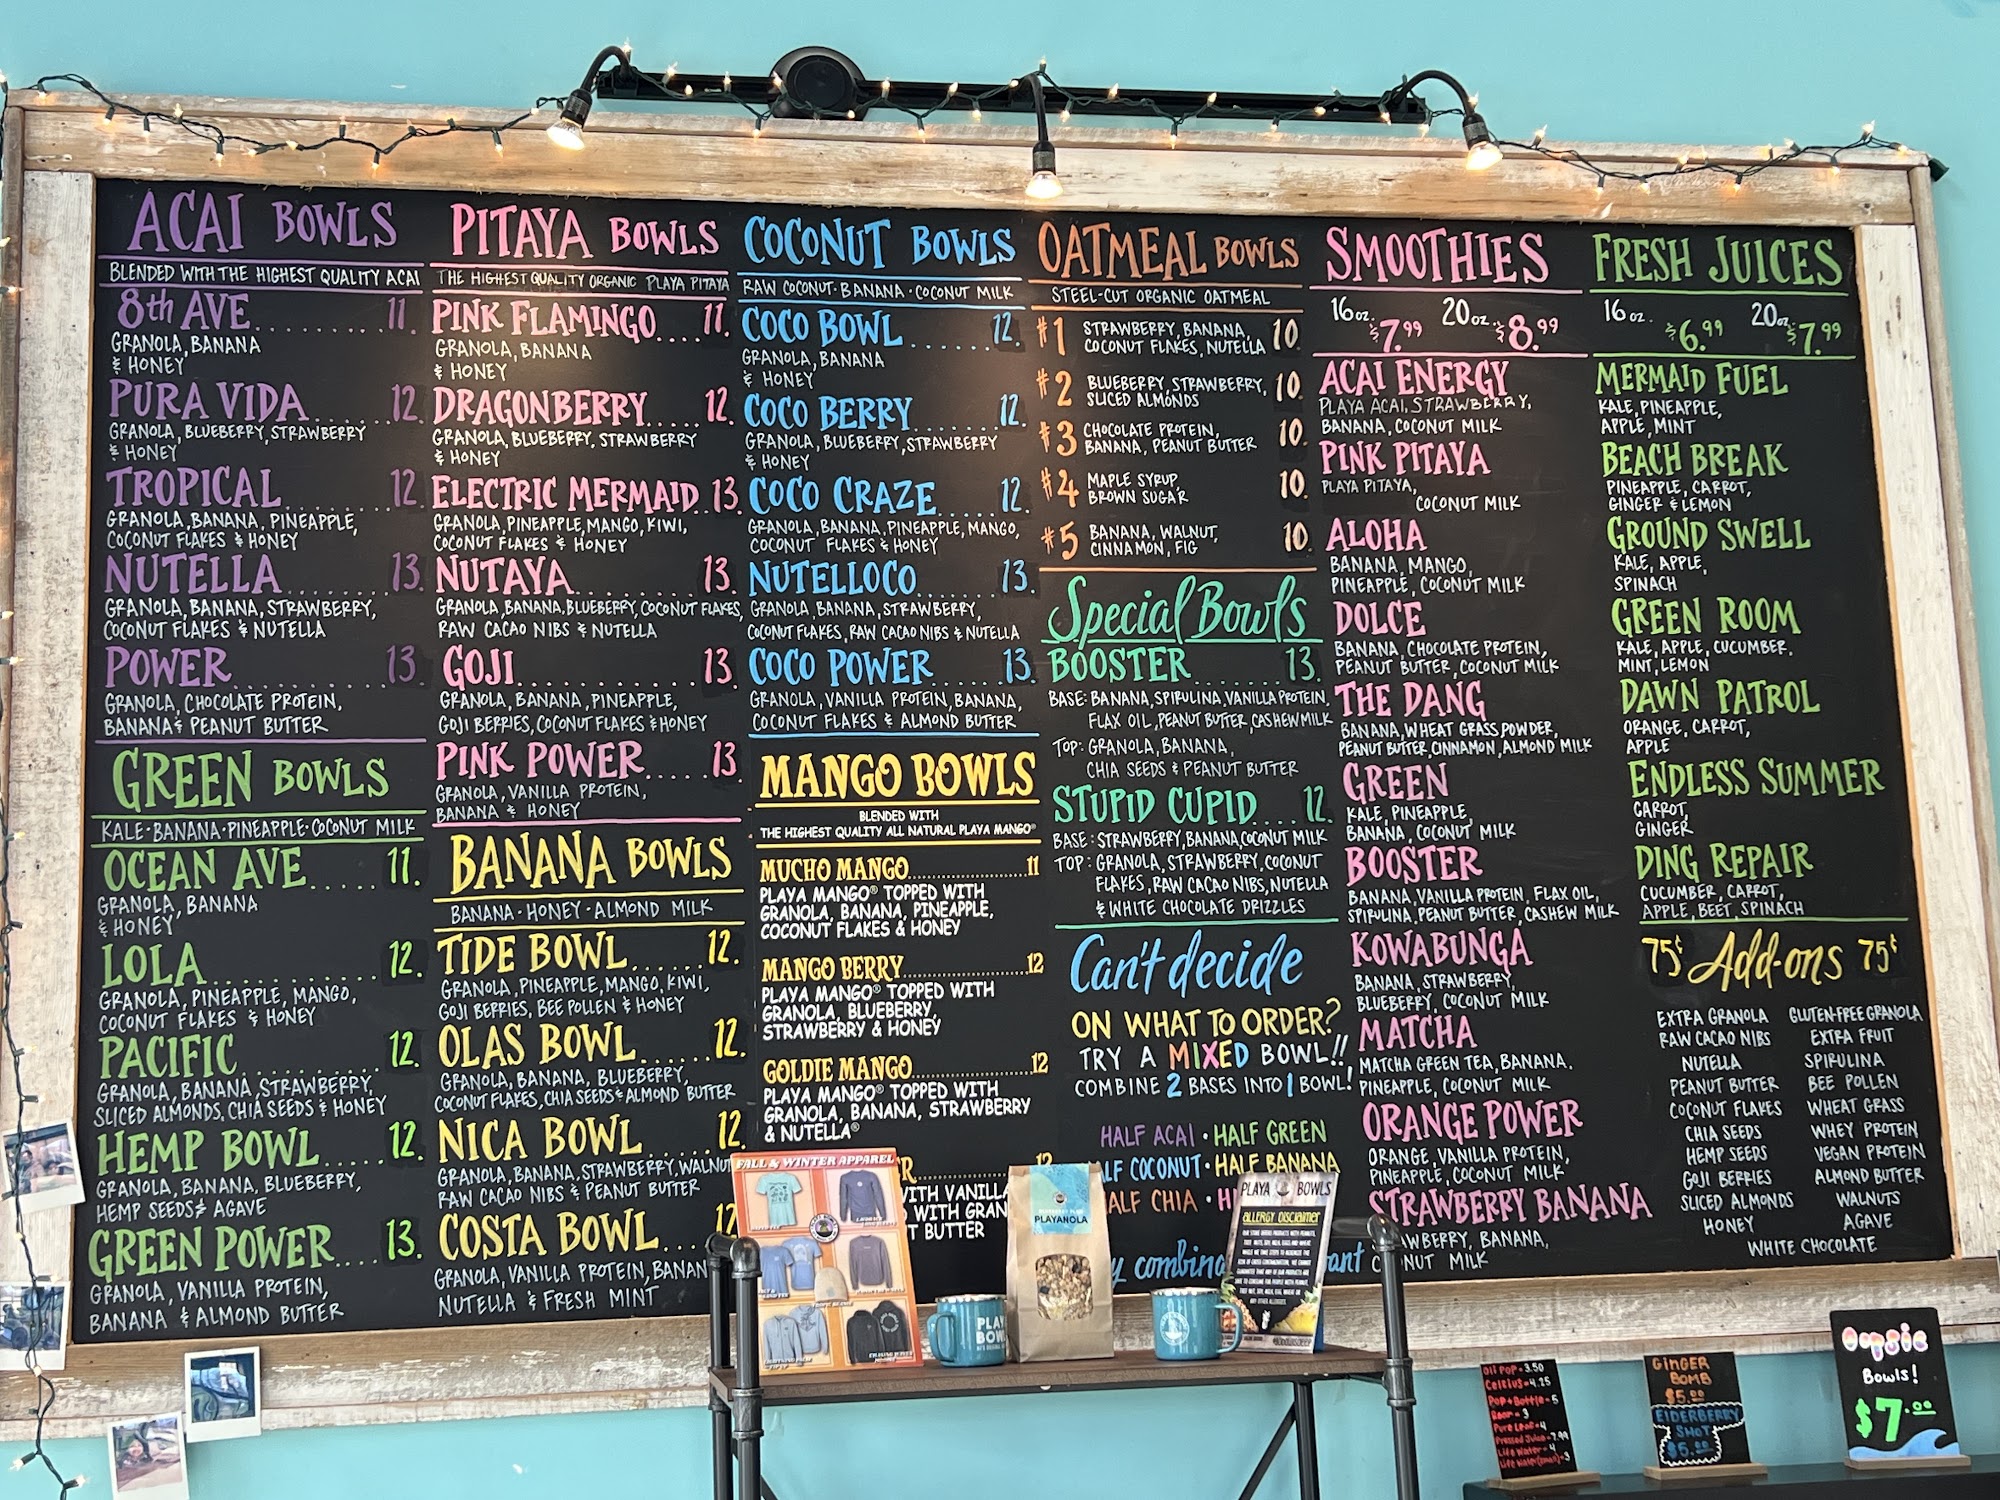 ACAI BOWLS
BLENDED WITH THE HIGHEST QUALITY ACAI
8th AVE........ 11.
GRANOLA, BANANA
& HONEY
PURA VIDA..... 12
GRANOLA, BLUEBERRY, STRAWBERRY
& HONEY
TROPICAL....... 12
GRANOLA, BANANA, PINEAPPLE,
COCONUT FLAKES & HONEY
NUTELLA........ 13.
GRANOLA, BANANA, STRAWBERRY,
COCONUT FLAKES & NUTELLA
POWER.......... 13.
GRANOLA, CHOCOLATE PROTEIN,
BANANA & PEANUT BUTTER
GREEN BOWLS
KALE·BANANA·PINEAPPLE·COCONUT MILK
OCEAN AVE..... 11.
GRANOLA, BANANA
& HONEY
LOLA........... 12.
GRANOLA, PINEAPPLE, MANGO,
COCONUT FLAKES & HONEY
PACIFIC......... 12.
GRANOLA, BANANA, STRAWBERRY,
SLICED ALMONDS, CHIA SEEDS & HONEY
HEMP BOWL.... 12.
GRANOLA, BANANA, BLUEBERRY,
HEMP SEEDS & AGAVE
GREEN POWER.... 13.
GRANOLA, VANILLA PROTEIN,
BANANA & ALMOND BUTTER
PITAYA BOWLS
THE HIGHEST QUALITY ORGANIC PLAYA PITAYA
PINK FLAMINGO.... 11.
GRANOLA, BANANA
& HONEY
DRAGONBERRY..... 12.
GRANOLA, BLUEBERRY, STRAWBERRY
& HONEY
ELECTRIC MERMAID 13.
GRANOLA, PINEAPPLE, MANGO, KIWI,
COCONUT FLAKES & HONEY
NUTAYA......... 13.
GRANOLA, BANANA, BLUEBERRY, COCONUT FLAKES,
RAW CACAO NIBS & NUTELLA
GOJI........... 13.
GRANOLA, BANANA, PINEAPPLE,
GOJI BERRIES, COCONUT FLAKES & HONEY
PINK POWER..... 13.
GRANOLA, VANILLA PROTEIN,
BANANA & HONEY
BANANA BOWLS
BANANA·HONEY·ALMOND MILK
TIDE BOWL...... 12.
GRANOLA, PINEAPPLE, MANGO, KIWI,
GOJI BERRIES, BEE POLLEN & HONEY
OLAS BOWL...... 12.
GRANOLA, BANANA, BLUEBERRY,
COCONUT FLAKES, CHIA SEEDS & ALMOND BUTTER
NICA BOWL...... 12.
GRANOLA, BANANA, STRAWBERRY, WALNUT
RAW CACAO NIBS & PEANUT BUTTER
COSTA BOWL.... 12
GRANOLA, VANILLA PROTEIN, BANAN
NUTELLA & FRESH MINT
COCONUT BOWLS
RAW COCONUT·BANANA·COCONUT MILK
COCO BOWL....... 12.
GRANOLA, BANANA
& HONEY
COCO BERRY...... 12.
GRANOLA, BLUEBERRY, STRAWBERRY
& HONEY
COCO CRAZE..... 12.
GRANOLA, BANANA, PINEAPPLE, MANGO,
COCONUT FLAKES & HONEY
NUTELLOCO....... 13.
GRANOLA, BANANA, STRAWBERRY,
COCONUT FLAKES, RAW CACAO NIBS & NUTELLA
COCO POWER...... 13.
GRANOLA, VANILLA PROTEIN, BANANA,
COCONUT FLAKES & ALMOND BUTTER
MANGO BOWLS
BLENDED WITH
THE HIGHEST QUALITY ALL NATURAL PLAYA MANGO®
MUCHO MANGO..................11
PLAYA MANGO® TOPPED WITH
GRANOLA, BANANA, PINEAPPLE,
COCONUT FLAKES & HONEY
MANGO BERRY..................12
PLAYA MANGO® TOPPED WITH
GRANOLA, BLUEBERRY,
STRAWBERRY & HONEY
GOLDIE MANGO.................12
PLAYA MANGO® TOPPED WITH
GRANOLA, BANANA, STRAWBERRY
& NUTELLA®
12
WITH VANILLA
WITH GRAN
BUTTER
OATMEAL BOWLS
STEEL-CUT ORGANIC OATMEAL
#1 STRAWBERRY, BANANA, 10.
COCONUT FLAKES, NUTELLA
#2 BLUEBERRY, STRAWBERRY, 10.
SLICED ALMONDS
#3 CHOCOLATE PROTEIN, 10.
BANANA, PEANUT BUTTER
#4 MAPLE SYRUP, 10.
BROWN SUGAR
#5 BANANA, WALNUT, 10.
CINNAMON, FIG
Special Bowls
BOOSTER ........ 13.
BASE: BANANA, SPIRULINA, VANILLA PROTEIN,
FLAX OIL, PEANUT BUTTER, CASHEW MILK
TOP: GRANOLA, BANANA,
CHIA SEEDS & PEANUT BUTTER
STUPID CUPID.... 12.
BASE: STRAWBERRY, BANANA, COCONUT MILK
TOP: GRANOLA, STRAWBERRY, COCONUT
FLAKES, RAW CACAO NIBS, NUTELLA
& WHITE CHOCOLATE DRIZZLES
Can't decide
ON WHAT TO ORDER?
TRY A MIXED BOWL!!
COMBINE 2 BASES INTO 1 BOWL!
HALF ACAI · HALF GREEN
ALF COCONUT · HALF BANANA
ALF CHIA · H
y combina ant
SMOOTHIES
16oz. $7.99 20oz. $8.99
ACAI ENERGY
PLAYA ACAI, STRAWBERRY,
BANANA, COCONUT MILK
PINK PITAYA
PLAYA PITAYA,
COCONUT MILK
ALOHA
BANANA, MANGO,
PINEAPPLE, COCONUT MILK
DOLCE
BANANA, CHOCOLATE PROTEIN,
PEANUT BUTTER, COCONUT MILK
THE DANG
BANANA, WHEAT GRASS POWDER,
PEANUT BUTTER, CINNAMON, ALMOND MILK
GREEN
KALE, PINEAPPLE,
BANANA, COCONUT MILK
BOOSTER
BANANA, VANILLA PROTEIN, FLAX OIL,
SPIRULINA, PEANUT BUTTER, CASHEW MILK
KOWABUNGA
BANANA, STRAWBERRY,
BLUEBERRY, COCONUT MILK
MATCHA
MATCHA GREEN TEA, BANANA,
PINEAPPLE, COCONUT MILK
ORANGE POWER
ORANGE, VANILLA PROTEIN,
PINEAPPLE, COCONUT MILK
STRAWBERRY BANANA
AWBERRY, BANANA,
NUT MILK
FRESH JUICES
16oz. $6.99 20oz. $7.99
MERMAID FUEL
KALE, PINEAPPLE,
APPLE, MINT
BEACH BREAK
PINEAPPLE, CARROT,
GINGER & LEMON
GROUND SWELL
KALE, APPLE,
SPINACH
GREEN ROOM
KALE, APPLE, CUCUMBER,
MINT, LEMON
DAWN PATROL
ORANGE, CARROT,
APPLE
ENDLESS SUMMER
CARROT,
GINGER
DING REPAIR
CUCUMBER, CARROT,
APPLE, BEET, SPINACH
75¢ Add-ons 75¢
EXTRA GRANOLA GLUTEN-FREE GRANOLA
RAW CACAO NIBS EXTRA FRUIT
NUTELLA SPIRULINA
PEANUT BUTTER BEE POLLEN
COCONUT FLAKES WHEAT GRASS
CHIA SEEDS WHEY PROTEIN
HEMP SEEDS VEGAN PROTEIN
GOJI BERRIES ALMOND BUTTER
SLICED ALMONDS WALNUTS
HONEY AGAVE
WHITE CHOCOLATE
FALL & WINTER APPAREL
PLAYANOLA
PLAYA BOWLS
ALLERGY DISCLAIMER
PLAY
BOW
Oli POP - 3.50
Celcius - 4.25
Pop + Bottle - 5
Pure Leaf - 4
Pressed Juice - 7.99
Life Water - 4
GINGER
BOMB
$5.00
ElDERBERRY
SHOT
$5.00
Oopsie
Bowls!
$7.00